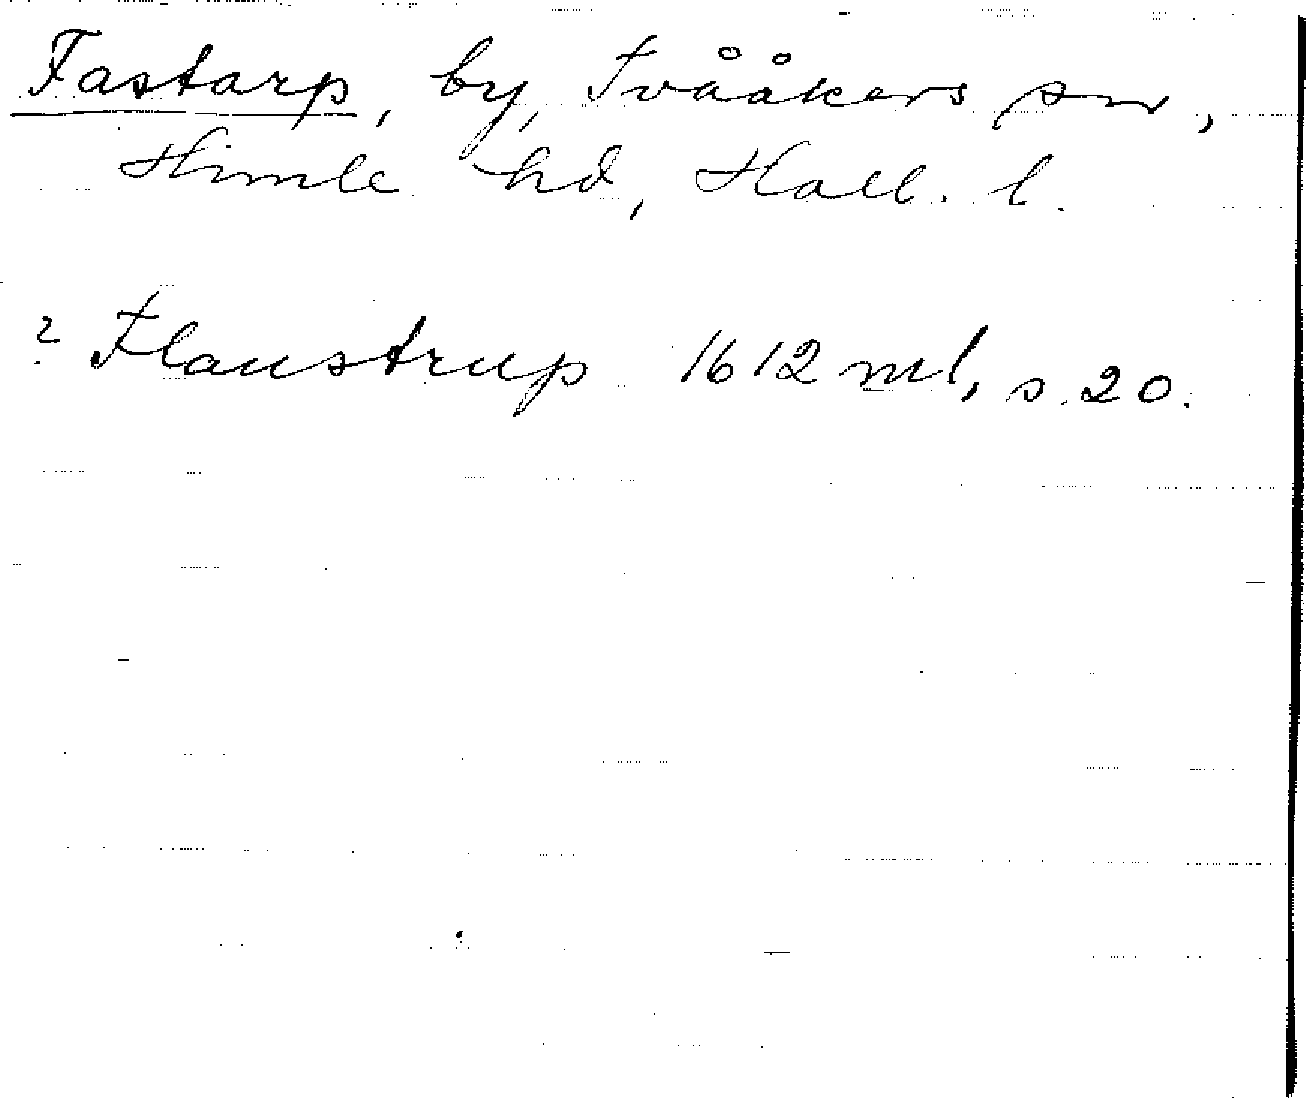 Fastarp, by, Tvååkers sn,
Himle hd, Hall. l.
? Flaustrup 1612 ml, s. 20.